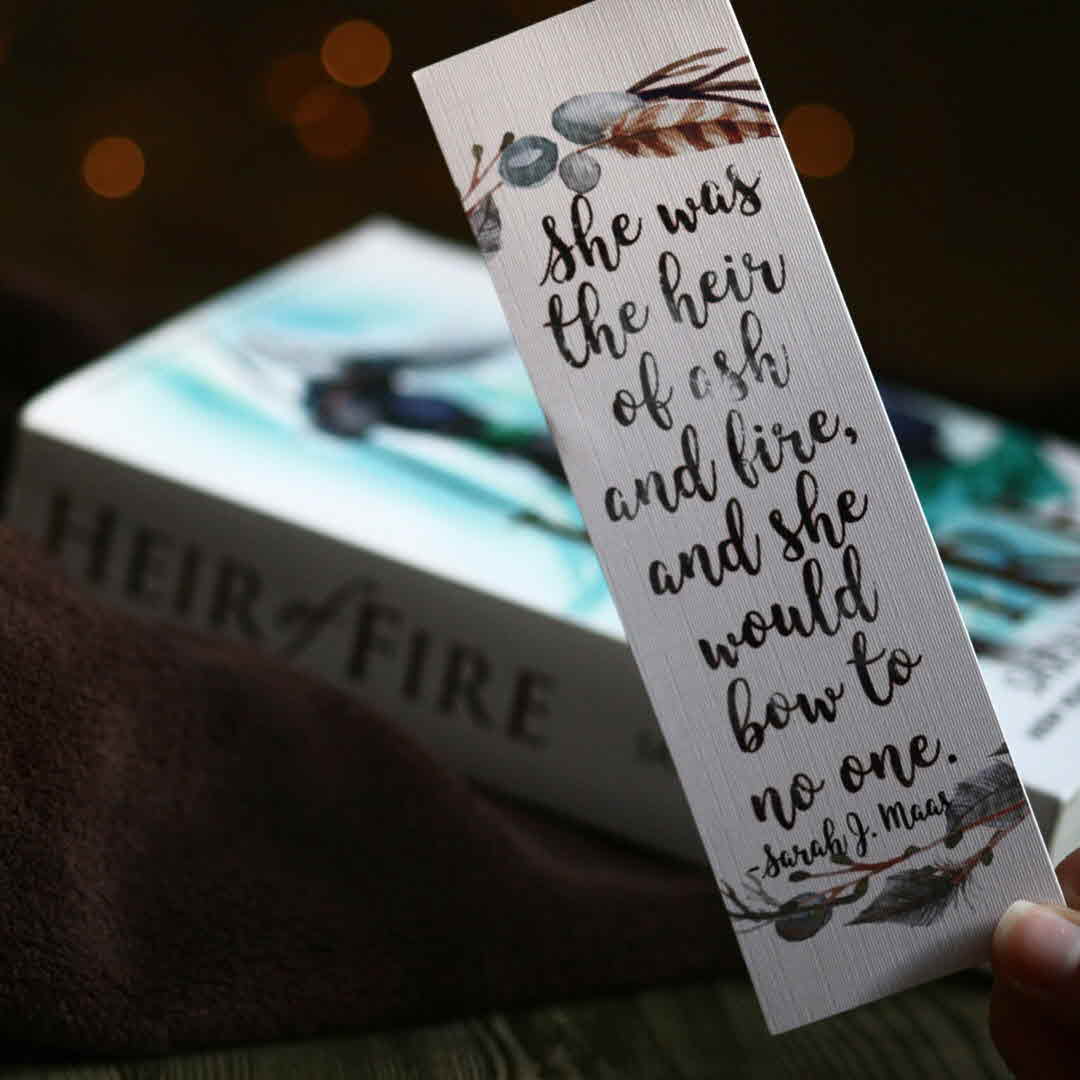 She was
the heir
of ash
and fire,
and she
would
bow to
no one.
-Sarah J. Maas
HEIR of FIRE